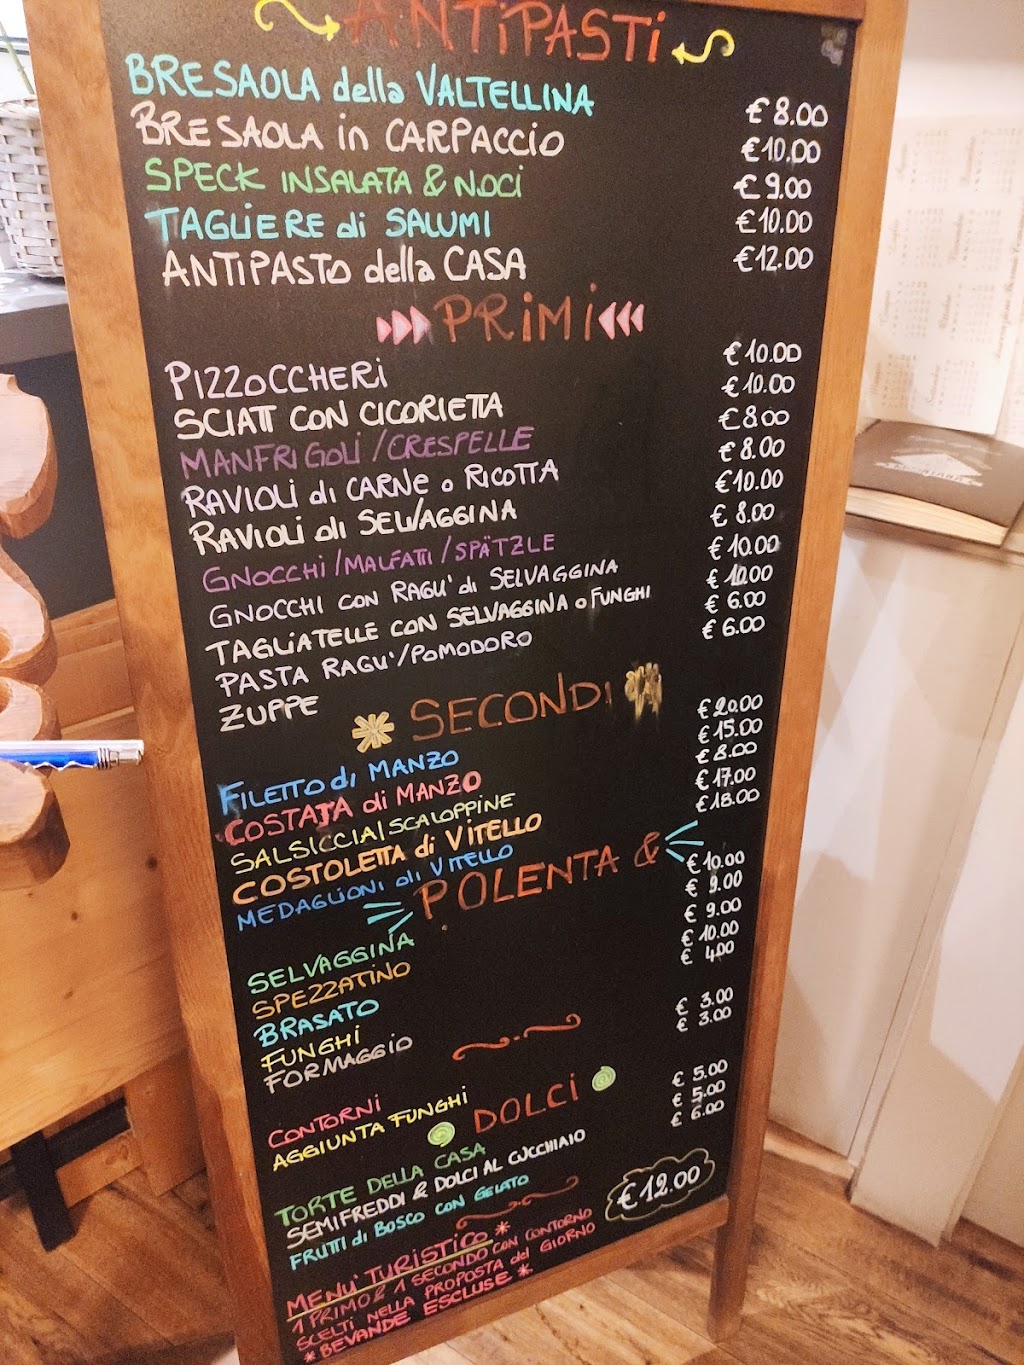 ANTIPASTI
BRESAOLA della VALTELLINA € 8.00
BRESAOLA in CARPACCIO € 10.00
SPECK INSALATA & NOCI € 9.00
TAGLIERE di SALUMI € 10.00
ANTIPASTO della CASA € 12.00
PRIMI
PIZZOCCHERI € 10.00
SCIATT CON CICORIETTA € 10.00
MANFRIGOLI/CRESPELLE € 8.00
RAVIOLI di CARNE o RICOTTA € 8.00
RAVIOLI di SELVAGGINA € 10.00
GNOCCHI/MALFATTI/SPÄTZLE € 8.00
GNOCCHI CON RAGU' di SELVAGGINA € 10.00
TAGLIATELLE CON SELVAGGINA o FUNGHI € 10.00
PASTA RAGU'/POMODORO € 6.00
ZUPPE € 6.00
SECONDI
FILETTO di MANZO € 20.00
COSTATA di MANZO € 15.00
SALSICCIA/SCALOPPINE € 8.00
COSTOLETTA di VITELLO € 17.00
MEDAGLIONI di VITELLO € 18.00
POLENTA &
SELVAGGINA € 10.00
SPEZZATINO € 9.00
BRASATO € 9.00
FUNGHI € 10.00
FORMAGGIO € 4.00
CONTORNI € 3.00
AGGIUNTA FUNGHI € 3.00
DOLCI
TORTE DELLA CASA € 5.00
SEMIFREDDI & DOLCI AL CUCCHIAIO € 5.00
FRUTTI di BOSCO CON GELATO € 6.00
MENU' TURISTICO * € 12.00
1 PRIMO o 1 SECONDO CON CONTORNO
SCELTI NELLA PROPOSTA del GIORNO
* BEVANDE ESCLUSE *